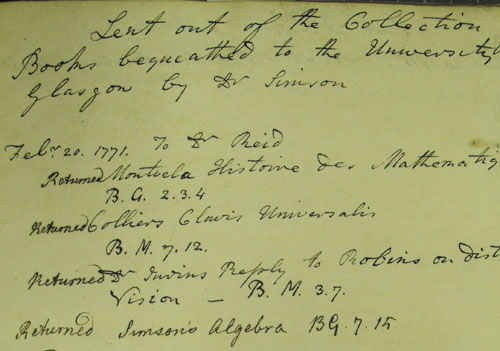 Lent out of the Collection
Books bequeathed to the University
Glasgow by Dr Simson
Febry 20. 1771. To Dr Reid
Returned Montucla Histoire des Mathematiq
B. G. 2.3.4
Returned Colliers Clavis Universalis
B. M. 7. 12.
Returned Dr Jurins Reply to Robins on dist
Vision — B. M. 3.7.
Returned Simson's Algebra BG. 7. 15